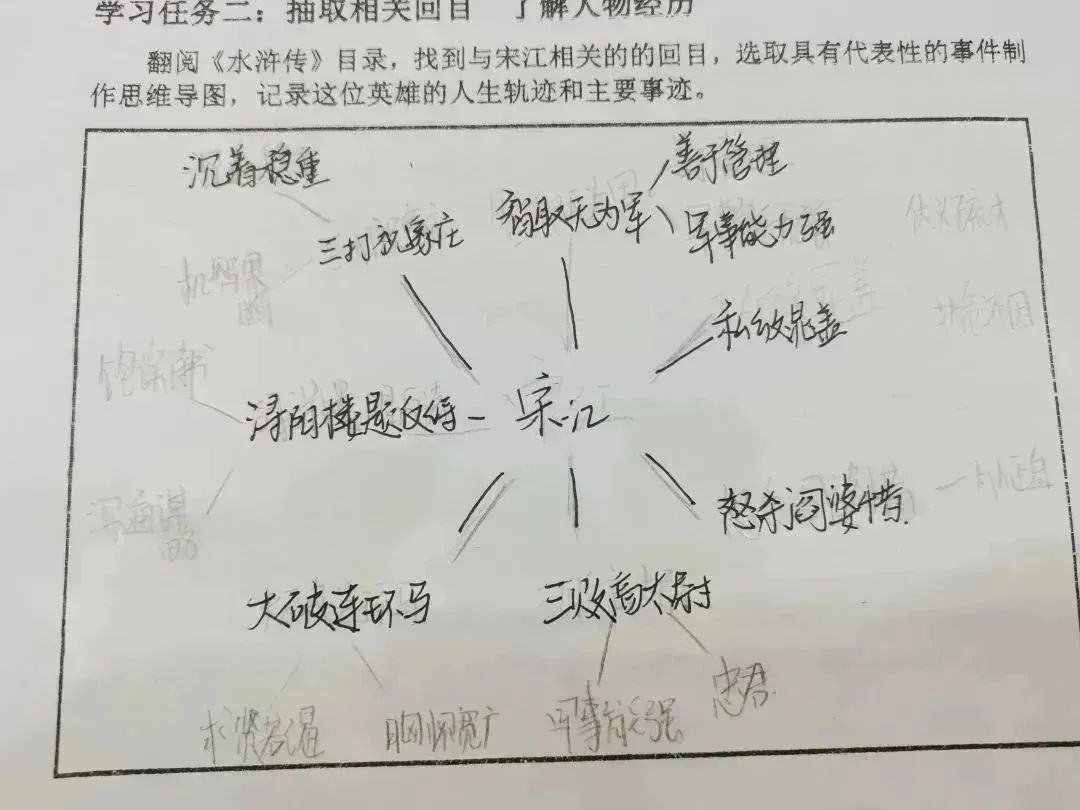 学习任务二：抽取相关回目 了解人物经历
翻阅《水浒传》目录，找到与宋江相关的的回目，选取具有代表性的事件制
作思维导图，记录这位英雄的人生轨迹和主要事迹。
沉着稳重
善于管理
智取无为军
军事能力强
三打祝家庄
机智果
断
私放晁盖
仗义疏才
饱读诗书
浔阳楼题反诗
宋江
怒杀阎婆惜
大破连环马
三败高太尉
求贤若渴
胸怀宽广
军事能力强
忠君